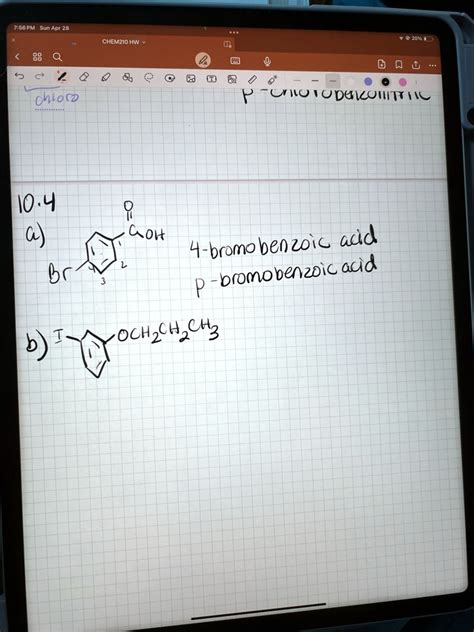 7:56 PM Sun Apr 28
20%
CHEM210 HW
chloro
10.4
a)
O
C OH
Br 4 3 2
4-bromobenzoic acid
p-bromobenzoic acid
b) I OCH2CH2CH3